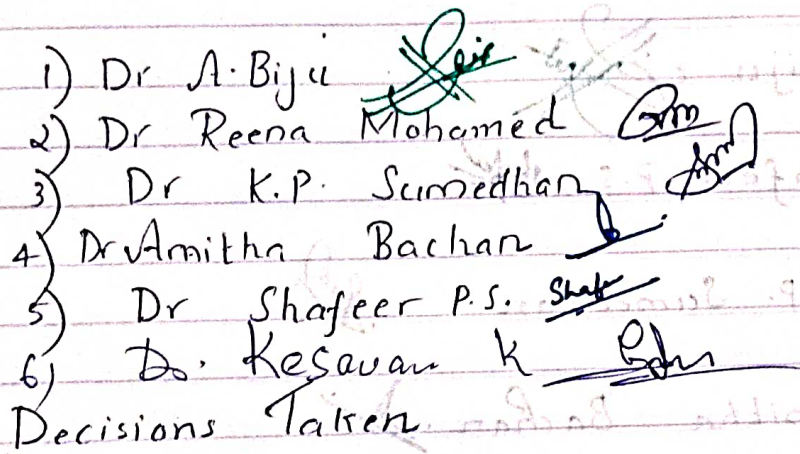 1) Dr A. Biju
2) Dr Reena Mohamed
3) Dr K.P. Sumedhan
4) Dr Amitha Bachan
5) Dr Shafeer P.S. Shafe
6) Dr. Kesavan K
Decisions Taken